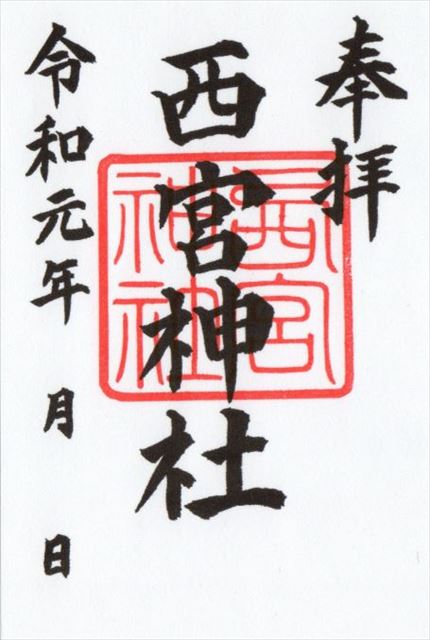 奉拝
西宮神社
令和元年 月 日
西宮
神社